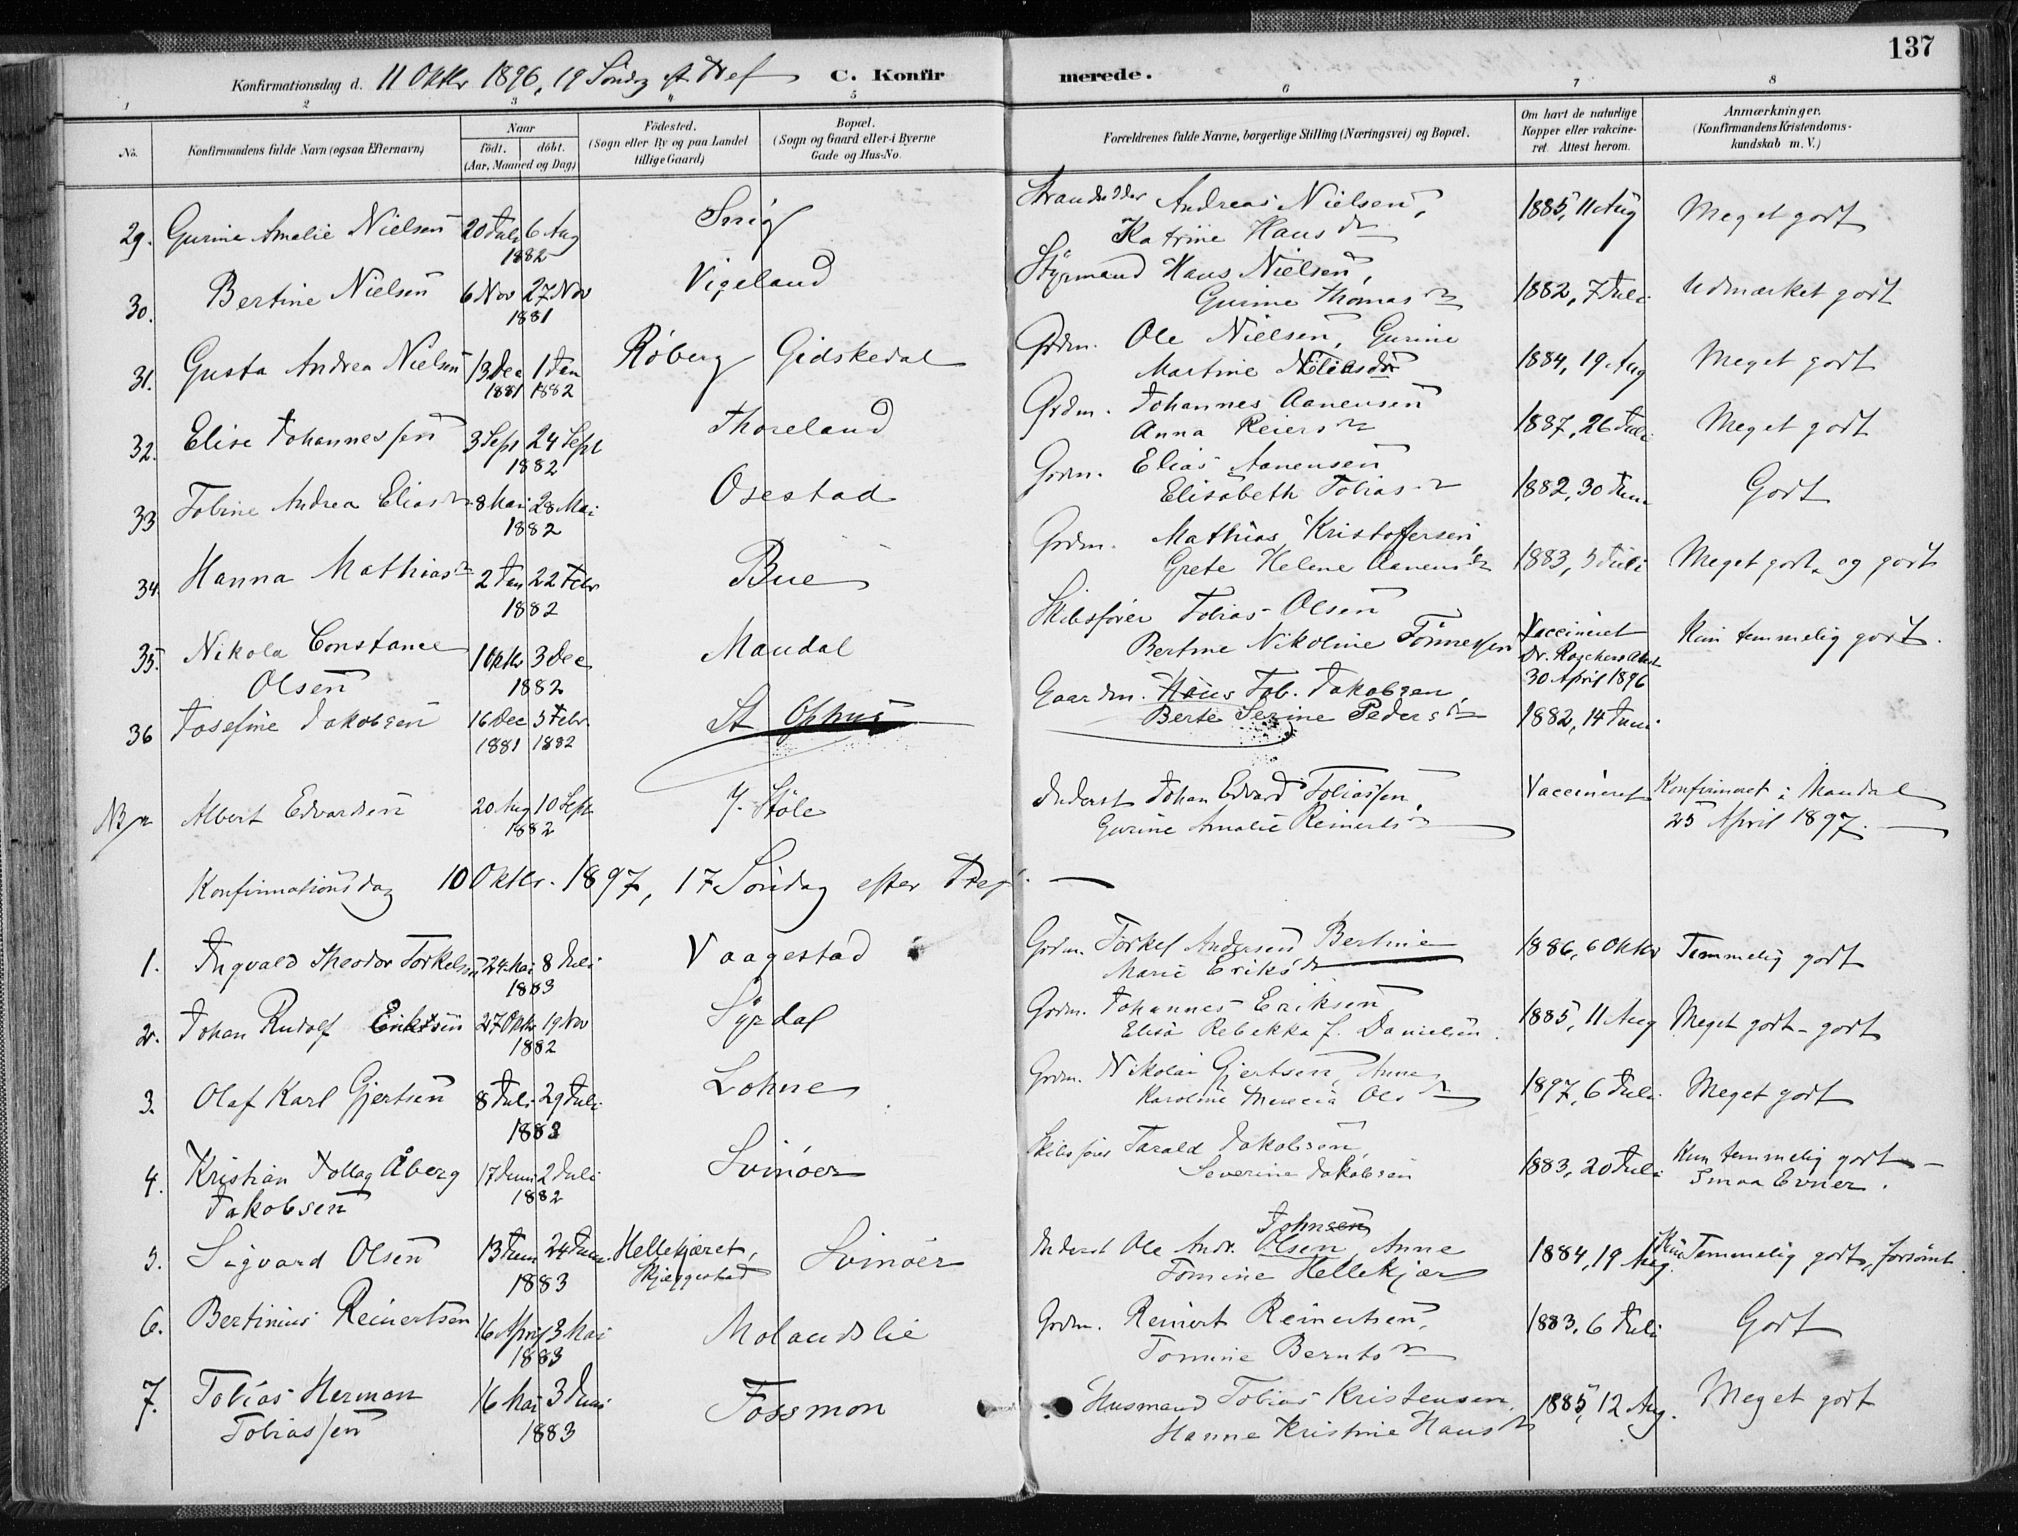 137
Konfirmationsdag d. 11 Oktbr 1896, 19 Søndag eft. Tref C. Konfirmerede.
1 2 3 4 5 6 7 8
No. Konfirmandens fulde Navn (ogsaa Efternavn) Naar født. døbt. (Aar, Maaned og Dag) Fødested. (Sogn eller By og paa Landet tillige Gaard) Bopæl. (Sogn og Gaard eller i Byerne Gade og Hus-No. Forældrenes fulde Navne, borgerlige Stilling (Næringsvei) og Bopæl. Om havt de naturlige Kopper eller vakcineret. Attest herom. Anmærkninger. (Konfirmandens Kristendomskundskab m. V.)
29. Gurine Amalie Nielsen 20 Juli 6 Aug 1882 Snig Andreas Nielsen, 1885, 11 Aug Meget godt
Katrine Hansdr
30. Bertine Nielsen 6 Nov 27 Nov 1881 Vigeland Styrmand Hans Nielsen, 1882, 7 Juli Udmærket godt
Gurine Thomasdr
31. Gusta Andrea Nielsen 13 Dec 1881 1 Jan 1882 Røberg Gidskedal Grdm. Ole Nielsen, Gurine 1884, 19 Aug Meget godt
Martine
32. Elise Johannessen 3 Sept 24 Sept 1882 Thoreland Grdm. Johannes Aanensen 1887, 26 Juli Meget godt
Anna Reiersdr
33 Tobine Andrea Eliasdr 8 Mai 28 Mai 1882 Osestad Grdm. Elias Aanensen 1882, 30 Juni Godt
Elisabeth Tobiasdr
34 Hanna Mathiasdr 2 Jan 22 Febr 1882 Bue Grdm. Mathias Kristoffersen 1883, 5 Juli Meget godt og godt
Grete Helene Aanensdr
35. Nikola Constance 1 Oktb 3 Dec 1882 Mandal Skibsfører Tobias Olsen Vaccineret Kun temmelig godt.
Olsen Bertine Nikoline Tønnessen Dr. Attest 30 April 1896
36 Josefine Jakobsen 16 Dec 1881 5 Febr 1882 St Ophus Gaardm. Hans Tob. Jakobsen, 1882, 14 Juni
Berte Serine Pedersdr
NB Albert Edvardsen 20 Aug 10 Sept 1882 Y. Støle Inderst Johan Edvard Tobiassen, Vaccineret Konfirmeret i Mandal
Gurine Amalie Reinertsdr 25 April 1897.
Konfirmationsdag 10 Oktbr. 1897, 17 Søndag efter Tref.
1. Ingvald Theodor Torkelsen 24 Mai 8 Juli 1883 Vaagestad Grdm. Torkel Andersen Bertine 1886, 6 Oktbr Temmelig godt
Marie Eriksdr
2. Johan Rudolf Eriksen 27 Oktb 19 Nov 1882 Syrdal Grdm. Johannes Eriksen 1885, 11 Aug Meget godt - godt
Elise Rebekka f. Danielsen.
3. Olaf Karl Gjertsen 8 Juli 29 Juli 1883 Lohne Grdm. Nikolai Gjertsen, Anne 1897, 6 Juli Meget godt
Karoline Theresia Olsdr
4. Kristian Tollag Åberg 17 Juni 2 Juli 1882 Svinøer Skibsfører Tarald Jakobsen, 1883, 20 Juli Kun temmelig godt -
Jakobsen Severine Jakobsen Smaa Evner.
Johnsen
5. Sigvard Olsen 13 Juni 24 Juni 1883 Hellekjæret, Skjeggestad Svinøer Inderst Ole Andr. Olsen, Anne 1884, 19 Aug. Kun Temmelig godt, forsømt.
Tomine Hellekjær
6. Bertinius Reinertsen 16 April 3 Mai 1883 Molandslie Grdm. Reinert Reinertsen, 1883, 6 Juli Godt
Tomine Berntsdr
7. Tobias Herman 16 Mai 3 Juni 1883 Fossmon Husmand Tobias Kristensen, 1885, 12 Aug. Meget godt
Tobiassen Hanne Kristine Hansdr